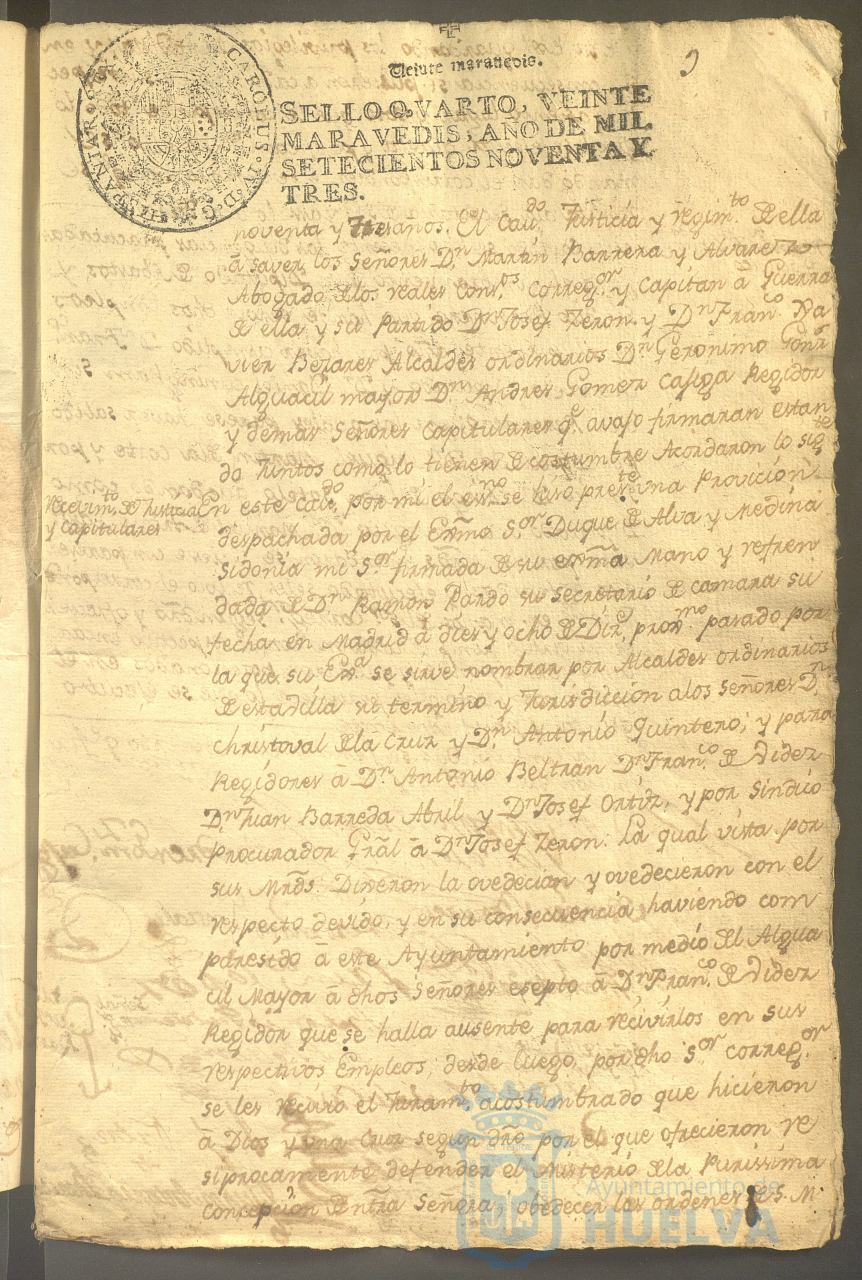 Veinte maravedis.
SELLO QVARTO, VEINTE
MARAVEDIS, AÑO DE MIL
SETECIENTOS NOVENTA Y
TRES.
CAROLUS·IV·D·G·HISPANIAR·
noventa y tres años. El Cavdo. Justicia y regimto. de ella
â saver los Señores Dn. Martin Barrera y Alvarez
Abogado de los reales Consos. Corregor. y Capitan â Guerra
de ella y su Partido Dn. Josef Zeron, y Dn. Franco. Xa
vier Bezares Alcaldes ordinarios Dn. Geronimo
Alguacil mayor Dn. Andres Gomez Regidor
y demas Señores Capitulares qe. avajo firmaran estan
do Juntos como lo tienen de costumbre Acordaron lo sigte
Recevimto. de Justicia
y capitulares
En este Cavdo. por mi el esno. se hiso preste. una Provicion
despachada por el Exmo. Sor. Duque de Alva y Medina
sidonia mi Sor. firmada de su exma. Mano y refren
dada de Dn. Ramon Pardo su secretario de camara su
fecha en Madrid â dies y ocho de Dizre. proxmo. pasado por
la que su Exa. se sirve nombrar por Alcaldes ordinarios
de esta villa su termino y Jurisdiccion a los Señores Dn.
Christoval de la Cruz y Dn. Antonio Quintero; y para
Regidores â Dn. Antonio Beltran Dn. Franco. de Videz
Dn. Juan Barreda Abril y Dn. Josef Ortiz, y por Sindico
Procurador Gral â Dn. Josef Zeron. La qual vista por
sus Mrds. Dixeron la ovedecian y ovedecieron con el
respecto devido, y en su consecuencia haviendo com
paresido â este Ayuntamiento por medio del Algua
cil Mayor â dhos Señores esepto â Dn. Franco. de Videz
Regidor que se halla ausente para recivirlos en sus
respectivos Empleos, desde luego, por dho Sor. Corregor.
se les recivió el Juramto. acostumbrado que hicieron
â Dios y una Cruz segun dro por el que ofrecieron re
siprocamente defender el Misterio de la Purissima
Concepcion de Ntra Señora, obedecer las ordenes de S. M.
Ayuntamiento de
HUELVA